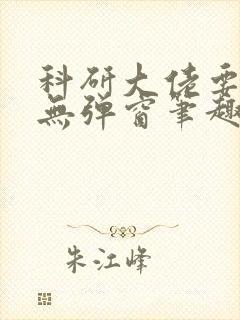 科研大佬要
無弹窗筆趣
朱江峰